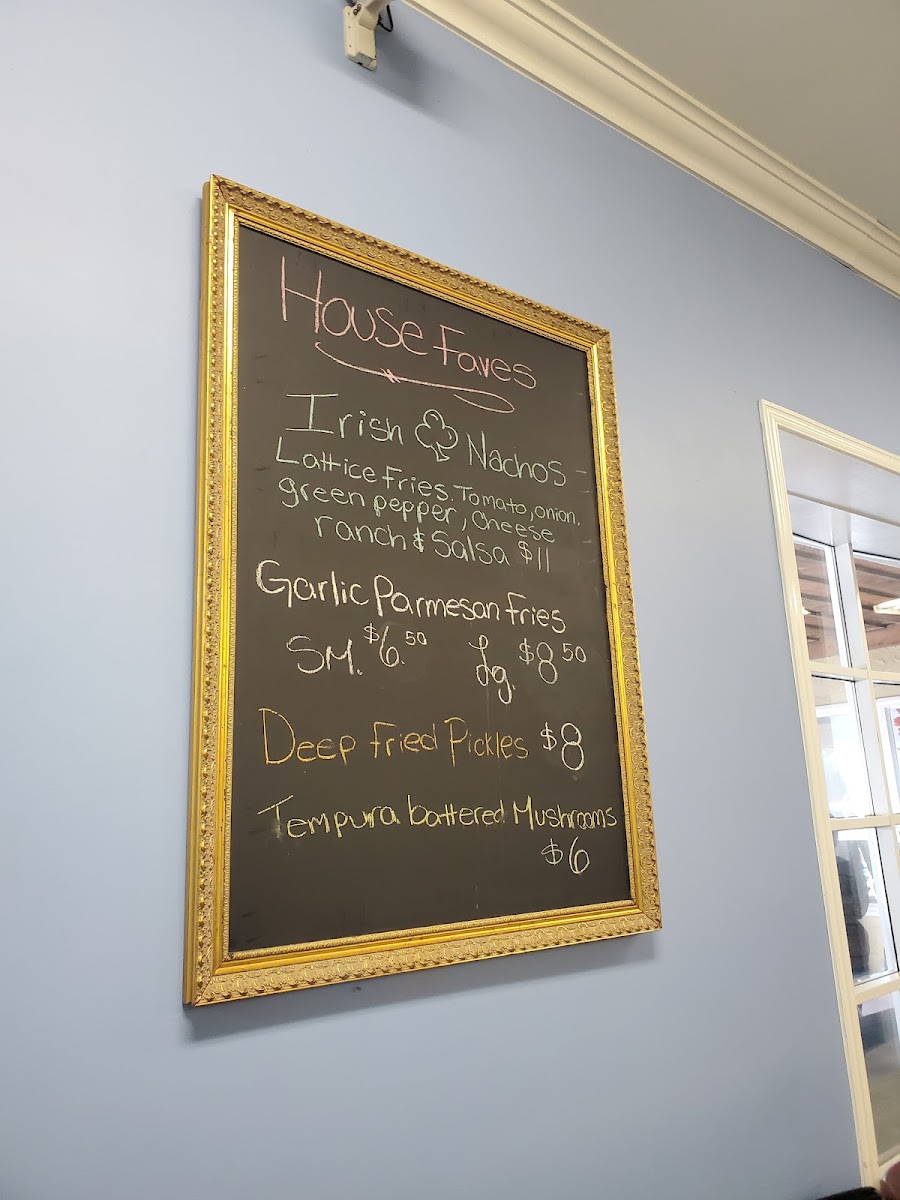 House Faves
Irish Nachos -
Lattice Fries. Tomato, onion.
green pepper, Cheese
ranch & Salsa $11
Garlic Parmesan fries
SM. $6.50 Lg. $8 50
Deep Fried Pickles $8
Tempura battered Mushrooms
$6